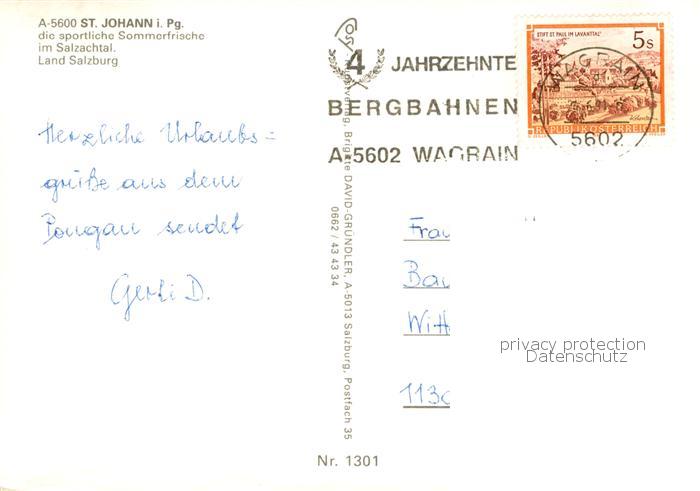 A-5600 ST. JOHANN i. Pg.
die sportliche Sommerfrische
im Salzachtal.
Land Salzburg
Herzliche Urlaubs=
grüße aus dem
Pongau sendet
Gerti D.
4 JAHRZEHNTE
BERGBAHNEN
A-5602 WAGRAIN
STIFT ST. PAUL IM LAVANTTAL
5s
REPUBLIK ÖSTERREICH
WAGRAIN
5602
Brigitte DAVID-GRÜNDLER, A-5013 Salzburg, Postfach 35
0662 / 43 43 34
Frau
Bau
Witt
113
privacy protection
Datenschutz
Nr. 1301